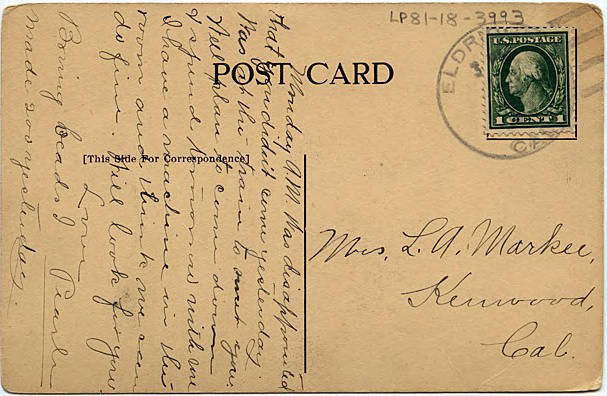 LP81-18-3993
POST CARD
ELDR
CAL
U.S. POSTAGE
1 CENT 1
[This Side For Correspondence]
Mrs. L. A. Markee,
Kenwood,
Cal.
Monday A.M. Was disappointed
that you didn't come yesterday.
Was at the train to meet you.
Will plan to come down
& spend tomorrow with me
I have a machine in the
room and think we can
do fine. Will look for you.
Love Pearle
Boxing beads I
made 200 yesterday.